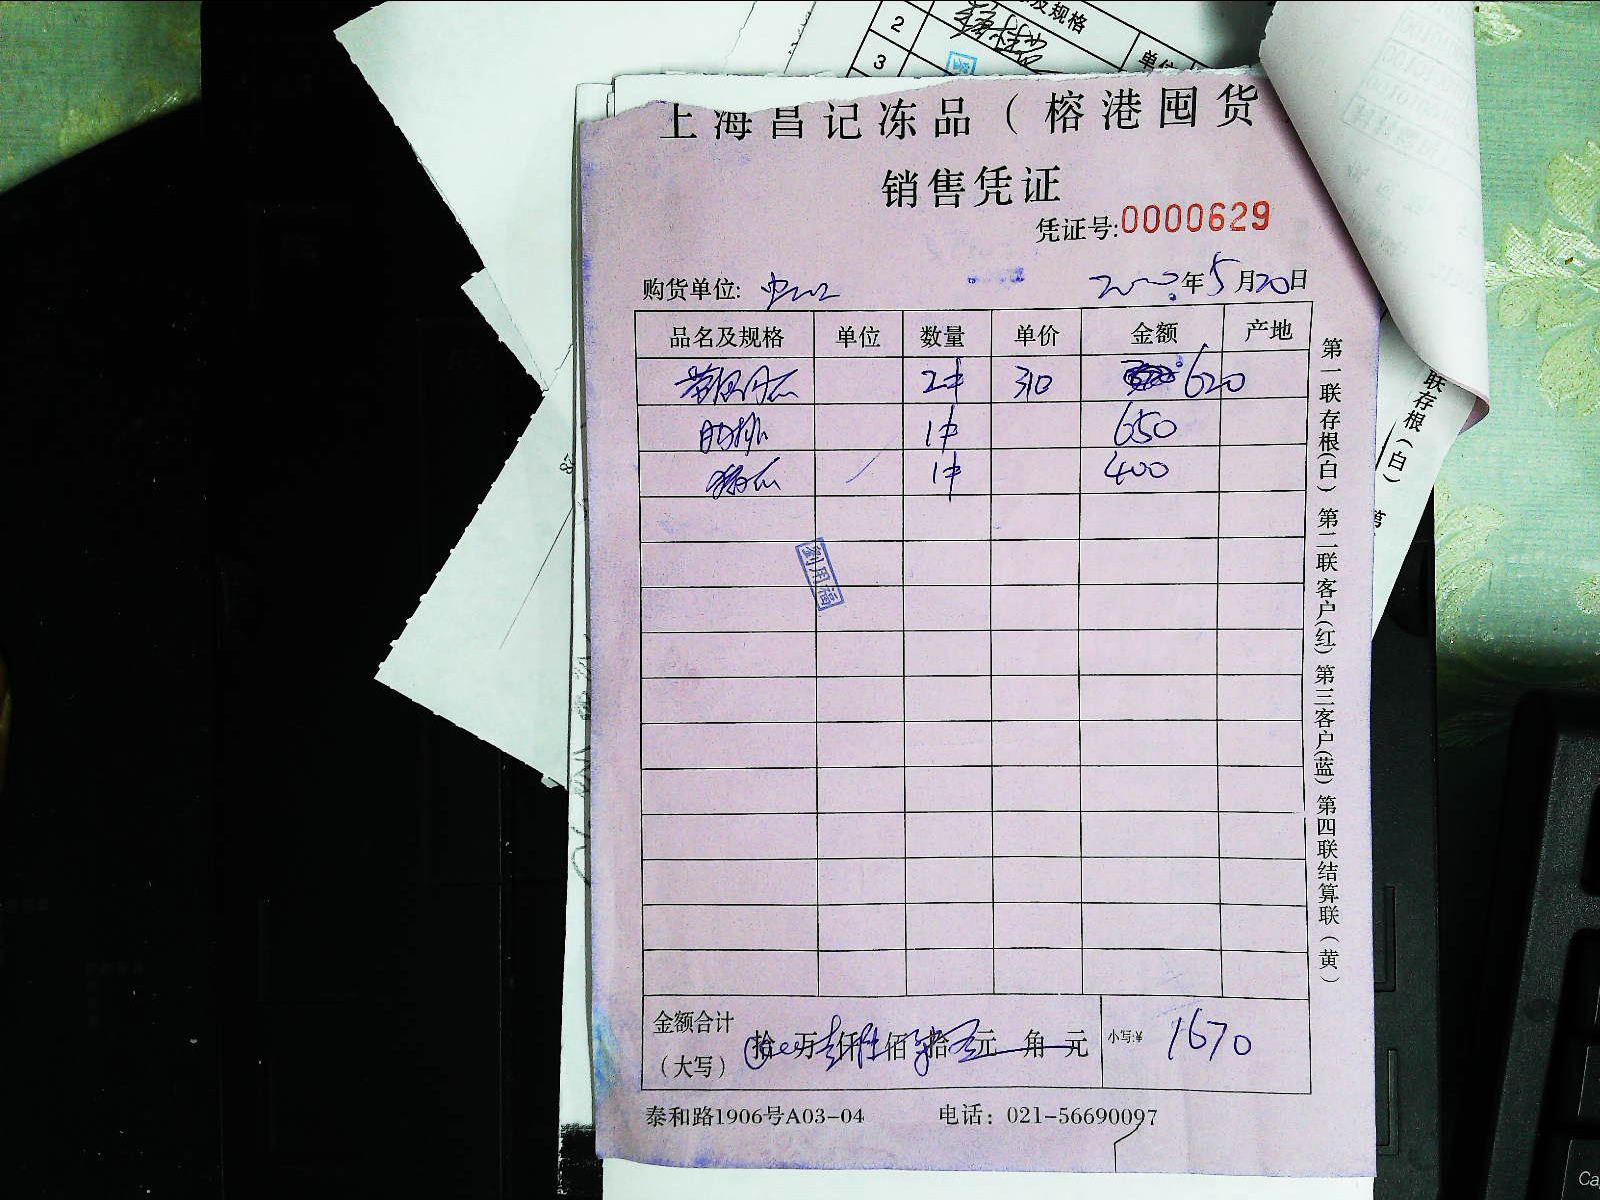 2
及规格
3
单位
上海昌记冻品（榕港囤货
销售凭证
凭证号:0000629
购货单位:
年5月20日
品名及规格 单位 数量 单价 金额 产地
2件 310 620
肋排 1件 650
1件 400
劉用福
金额合计（大写） 拾 万 仟 佰 拾 元 角 元 小写:¥ 1670
泰和路1906号A03-04 电话：021-56690097
第一联存根（白）第二联客户（红）第三客户（蓝）第四联结算联（黄）
联存根（白）
第